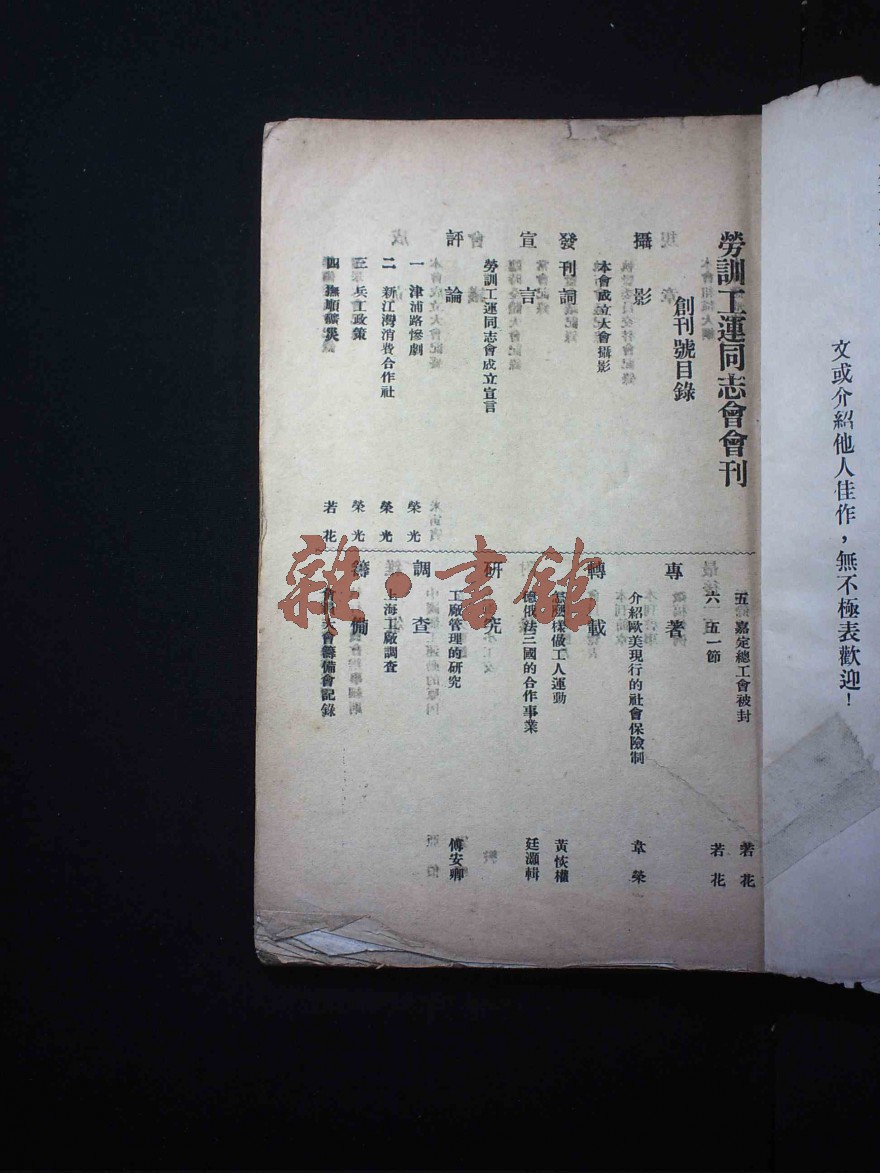 文或介紹他人佳作，無不極表歡迎！
勞訓工運同志會會刊
創刊號目錄
攝影
本會成立大會攝影
發刊詞
宣言
勞訓工運同志會成立宣言
評論
一 津浦路慘劇 榮光
二 新江灣消費合作社 榮光
三 兵工政策 榮光
四 撫順礦災 若花
五 嘉定總工會被封 若花
六 五一節 若花
專著
介紹歐美現行的社會保險制 韋榮
轉載
怎麼樣做工人運動 黃恢權
德俄法三國的合作事業 廷灝輯
研究
工廠管理的研究 傅安卿
調查
上海工廠調查
籌備
會員大會籌備會記錄
雜·書館